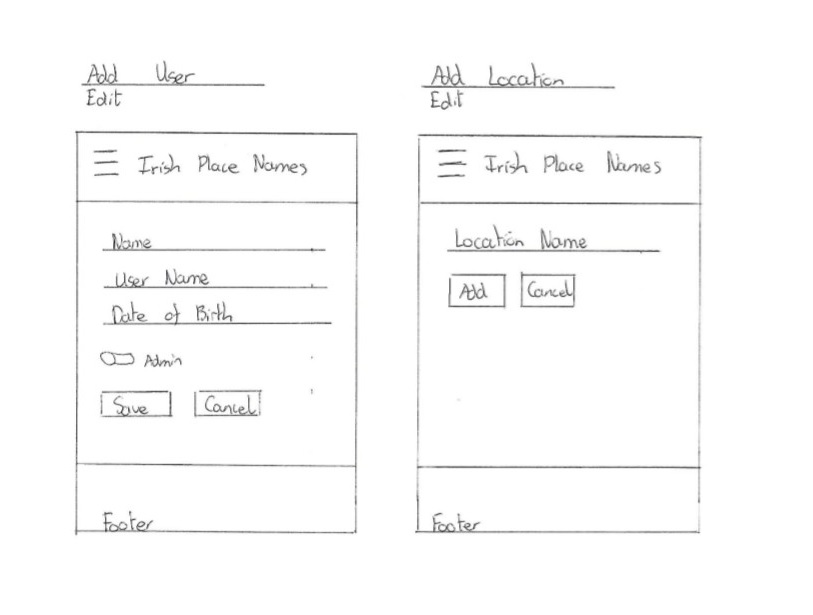 Add User
Edit
Irish Place Names
Name
User Name
Date of Birth
Admin
Save Cancel
Footer
Add Location
Edit
Irish Place Names
Location Name
Add Cancel
Footer